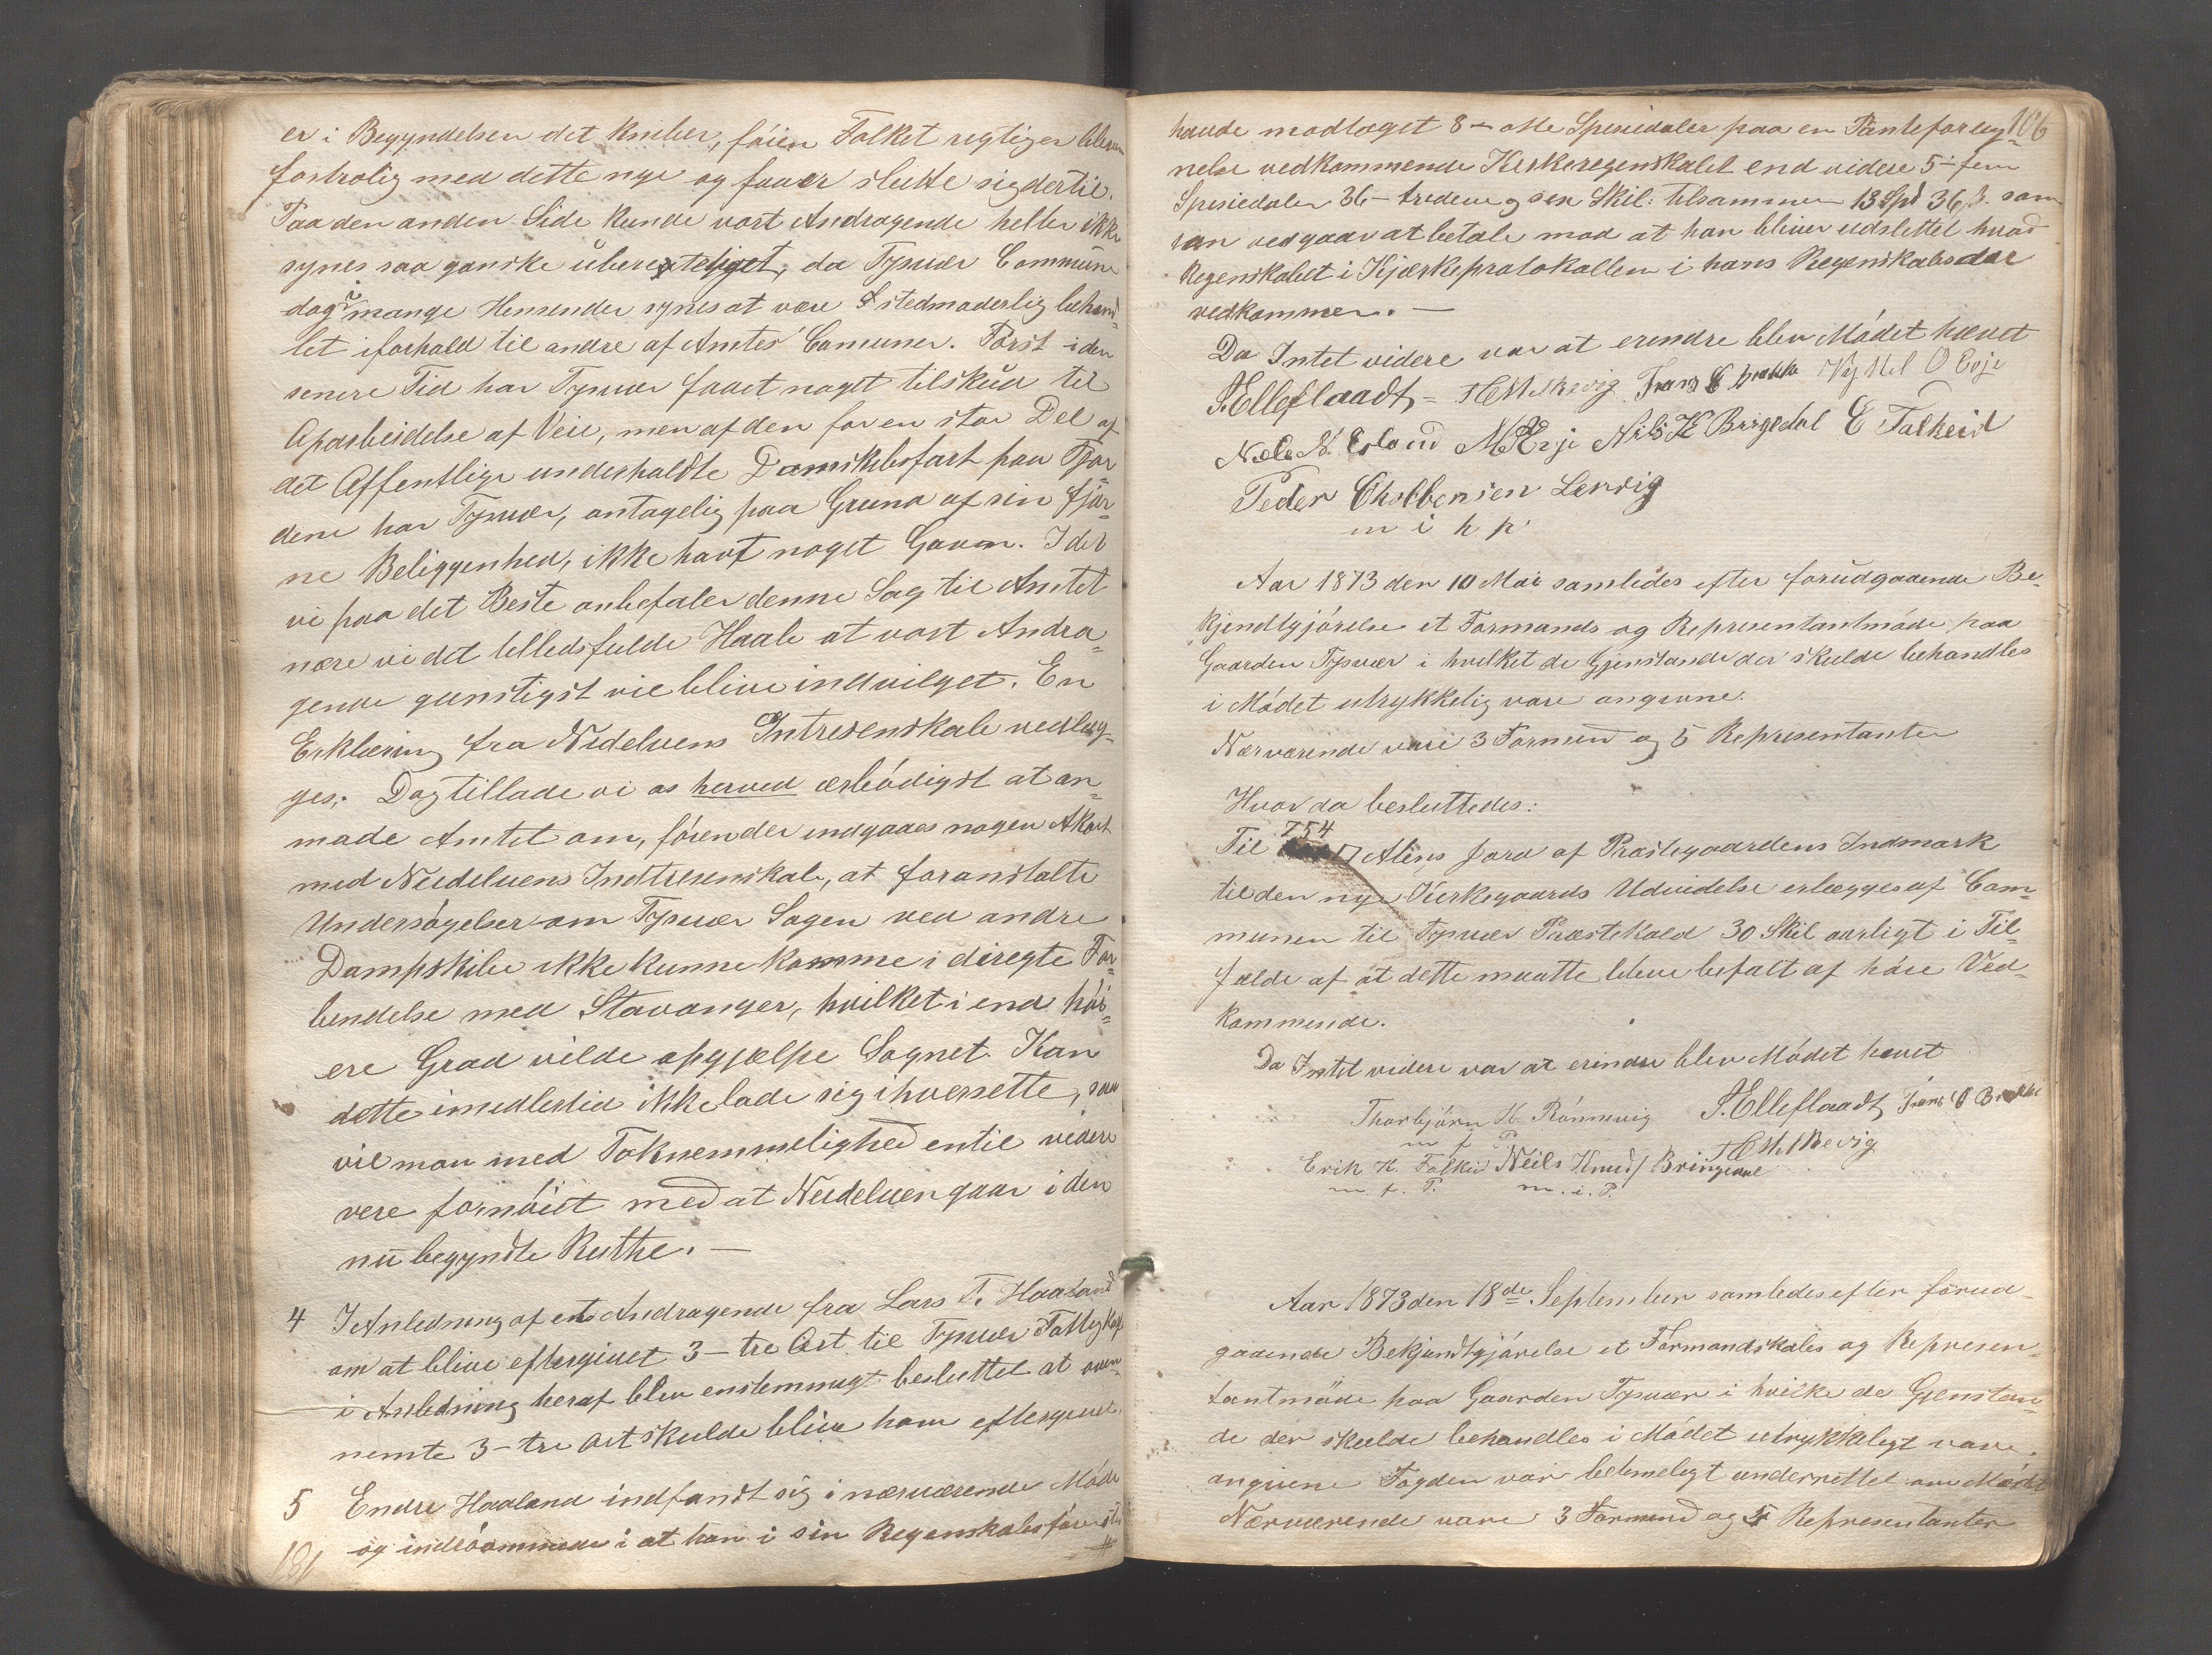 er i Begyndelsen det kniber, føien Folket regtigen bleven
fortrolig med dette nye og faaer slutte sig dertil.
Paa den anden Side kunde vort Andragende heller ikke
synes saa ganske uberegtelyget, da Tysvær Commune
dog i mange Hensender synes at være stedmoderlig behand-
let i forhold til andre af Amtes Comuner. Først i den
senere Tid har Tysvær faaet noget tilskud til
Oparbeidelse af Veie, men af den for en stor Del af
det Offentlige underholdte Damskibsfart paa Fjor-
dene har Tysvær, antagelig paa Grund af sin fjær-
ne Beliggenhed, ikke havt noget Gavn. Idet
vi paa det Beste anbefaler denne Sag til Amtet
nære vi det tilledsfulde Haab at vort Andra-
gende gunstigst vil blive indvilget. En
Erklæring fra Nidelvens Intresenskab vedlæg-
ges. Dog tillade vi os herved ærbødigst at an-
mode Amtet om, føiender indgaaes nogen Akort
med Neidelvens Indtresenskab, at foranstalte
Undersøgelser om Tysvær Sogen ved andre
Dampskibe ikke kunne komme i diregte For-
bendelse med Stavanger, hvilket i end høi-
ere Grad vilde ophjælpe Sognet. Kan
dette imedlertid ikke lade sig ihversette, saa
vil man med Toknemmelighed entil videre
vere fornøiet med at Neidelven gaar i den
nu begyndte Ruthe. —
4 I Anledning af et Andragende fra Lars T. Haaland
om at blive eftergivet 3 – tre Ort til Tysvær Fattigk
i Anledning heraf blev enstemmigt besluttet at oven-
nemte 3 – tre Ort skulde blive ham eftergivet.
5 Endre Haaland indfandt sig i nærværende Møde
og indrømmede i at han i sin Regenskabsførsel
181
106
havde modtaget 8 – otte Spesiedaler paa en Panteforlyg-
nelse vedkommende Kerkeregenskabet end videre 5 – fem
Spesiedaler 36 – tredeve og sex Skil: tilsammen 13 Spd 36 ß. som
han vedgaar at betale mod at han bliver udslettet hvad
Regenskabet i Kjerkeprotokollen i hans Regenskabsdar
vedkommer. —
Da Intet videre var at erendre blev Mødet hævet
S. Elleflaadt, = T C Melkevig Frans C Brække Kjittel O Eoje
Nels N. Esland M O Erje Nils K Bringedal E Falkeid
Peder Tholbensen Lervig
m i h p.
Aar 1873 den 10 Mai samledes efter forudgaaende Be-
kjendtgjørelse et Formands og Representantmøde paa
Gaarden Tysvær i hvilket de Gjenstande der skulde behandles
i Mødet utrykkelig vare angivne.
Nærværende vare 3 Formend og 5 Representanter
Hvor da besluttedes:
754
Til □ Alens Jord af Præstegaardens Indmark
til den nye Kirkegaards Udvidelse erlægges af Com-
munen til Tysvær Præstekald 30 Skil aarligt i Til-
fælde af at dette maatte blive befalt af høie Ved-
kommende.
Da Intet videre var at erindre blev Mødet hævet
Thorbjørn H. Rønnevig S. Elleflaadt, Frans C Brække
m f P. T C Melkevig
Erik H. Falkeid Neils Knuds Bringedal
m. f. P. m. i. P.
Aar 1873 den 18de September samledes efter forud-
gaaende Bekjendtgjørelse et Formandskabs og Represen-
tantmøde paa Gaarden Tysvær i hvilke de Gjenstan-
de der skulde behandles i Mødet utrykkeligt vare
angivne Fogden var betimeligt underrettet om Mødet
Nærværende vare 3 Formend og 5 Representanter